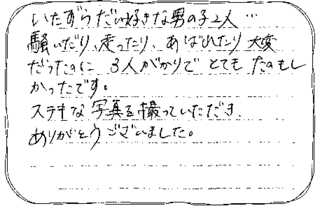 いたずらだい好きな男の子2人…
騒いだり、走ったり、あばれたり大変
だったのに 3人がかりで とても たのもし
かったです。
ステキな写真を撮っていただき
ありがとうございました。